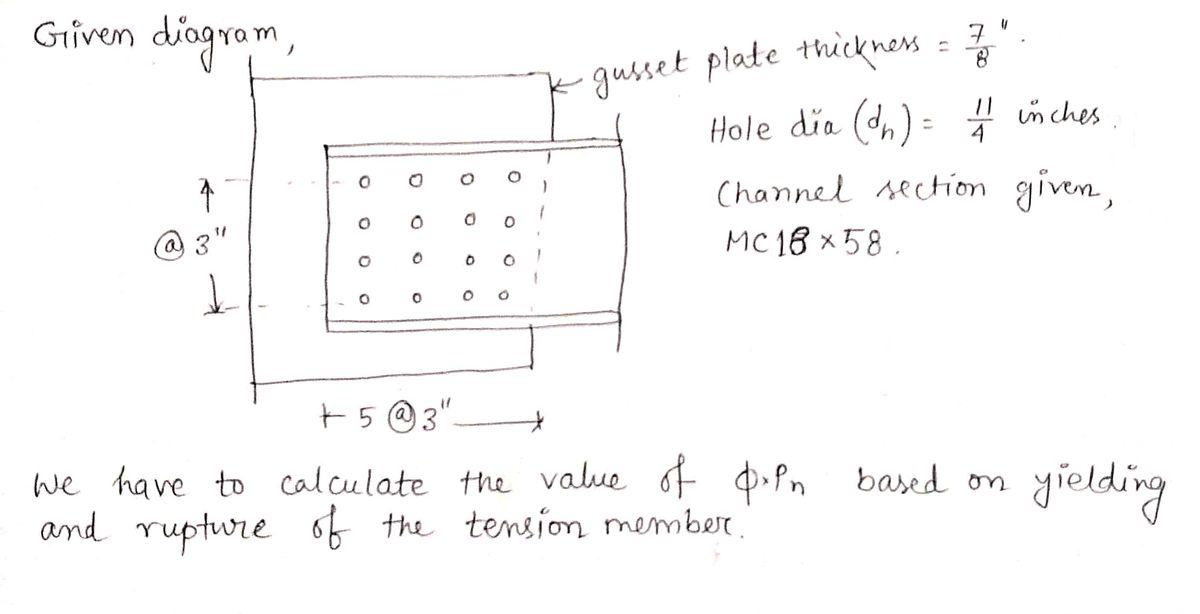 Given diagram,
gusset plate thickness = 7/8".
Hole dia (dh) = 11/4 inches.
Channel section given,
MC18 × 58.
@ 3"
5 @ 3"
We have to calculate the value of ϕ·Pn based on yielding
and rupture of the tension member.